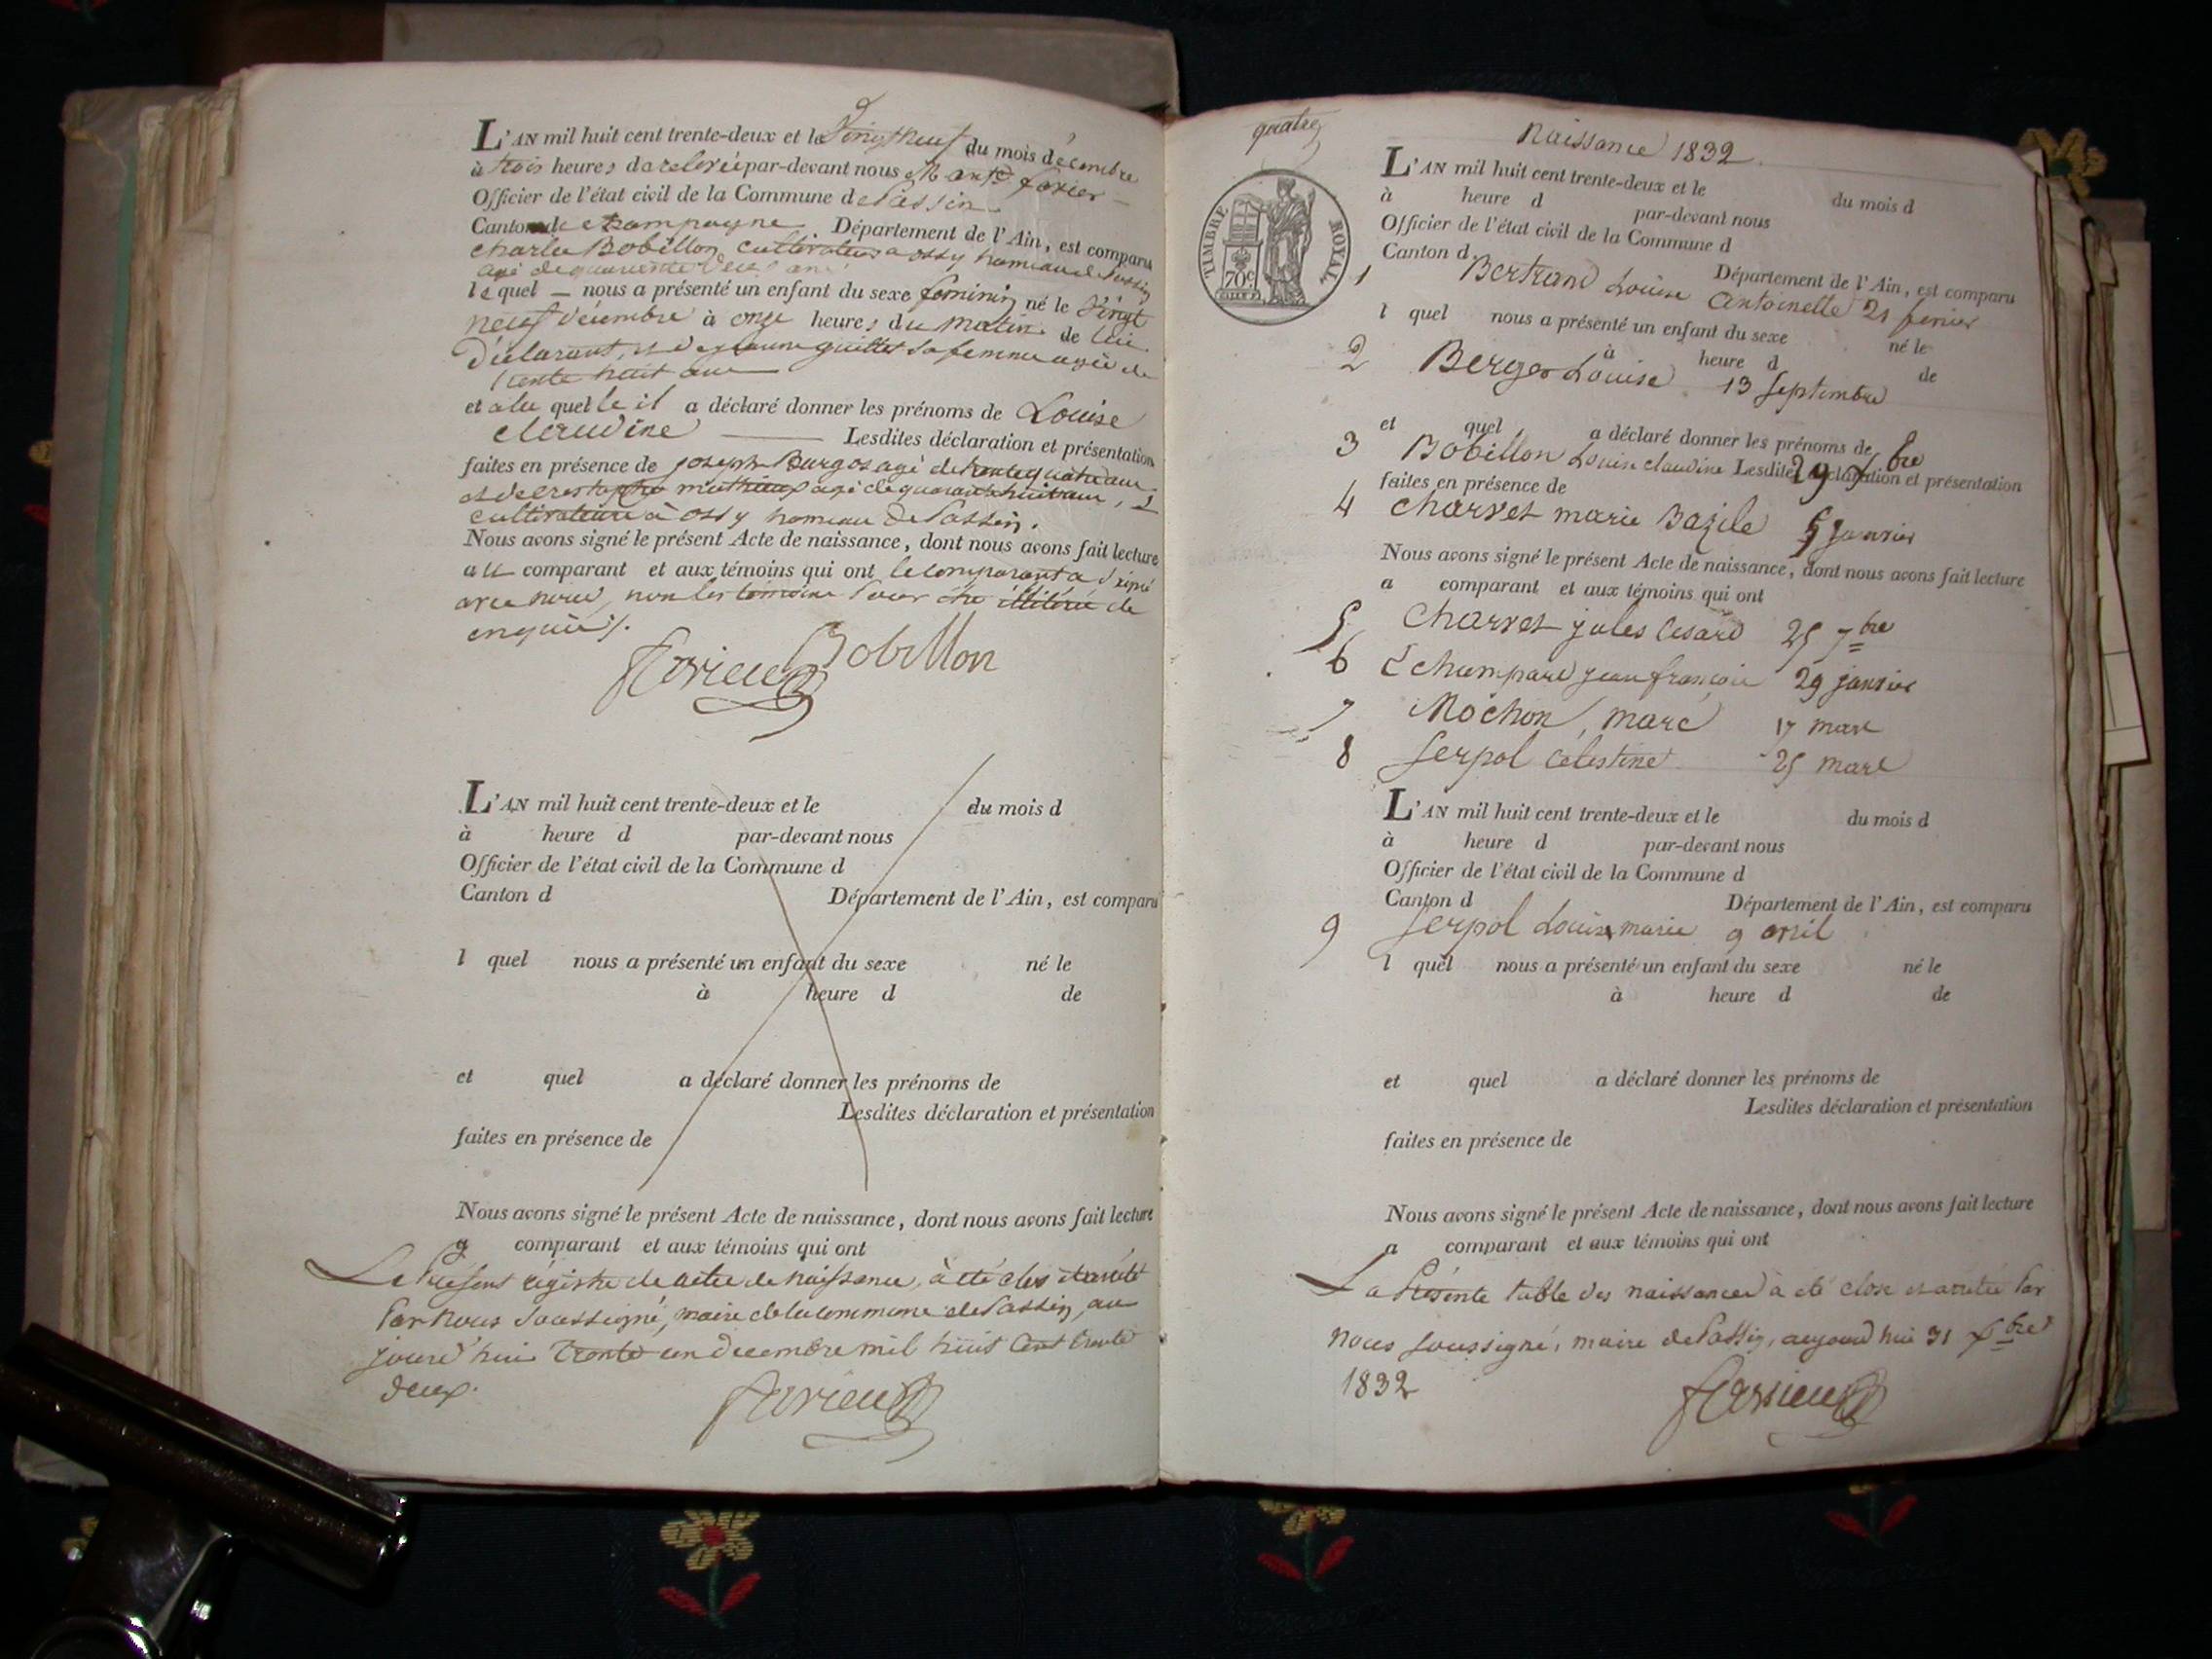 L'AN mil huit cent trente-deux et le vingt neuf du mois décembre
à trois heures de relevée par-devant nous
Officier de l'état civil de la Commune de Passin
Canton de champagne Département de l'Ain, est comparu
charles Bobillon cultivateur a ossy hameau de Passin
agé de quarente deux ans
le quel nous a présenté un enfant du sexe feminin né le vingt
neuf décembre à onze heures du matin de lui
déclarant, et de guillet sa femme agée de
trente huit ans
et a la quelle il a déclaré donner les prénoms de Louise
claudine Lesdites déclaration et présentation
faites en présence de joseph Burgos agé de trente quatre ans
et de mathieux agé de quarante huit ans,
cultivateurs à ossy hameau de Passin.
Nous avons signé le présent Acte de naissance, dont nous avons fait lecture
au comparant et aux témoins qui ont le comparant a signé
avec nous, non les temoins pour être illiteré de
enquis
Bobillon
L'AN mil huit cent trente-deux et le du mois d
à heure d par-devant nous
Officier de l'état civil de la Commune d
Canton d Département de l'Ain, est comparu
l quel nous a présenté un enfant du sexe né le
à heure d de
et quel a déclaré donner les prénoms de
Lesdites déclaration et présentation
faites en présence de
Nous avons signé le présent Acte de naissance, dont nous avons fait lecture
a comparant et aux témoins qui ont
Le Présent régistre de actes de naissance, à été clos et areté
Par nous soussigné, maire de la commune de Passin, au
jourd'hui trente un decembre mil huit cent trente
deux.
quatre
TIMBRE ROYAL
70c
Naissance 1832
L'AN mil huit cent trente-deux et le du mois d
à heure d par-devant nous
Officier de l'état civil de la Commune d
Canton d Département de l'Ain, est comparu
1 Bertrand Louise antoinette 21 fevrier
l quel nous a présenté un enfant du sexe né le
à heure d de
2 Berger Louise 13 septembre
et quel a déclaré donner les prénoms de
3 Bobillon Louise claudine 29 Xbre
Lesdites déclaration et présentation
faites en présence de
4 Charvet marie Bazile 5 janvier
Nous avons signé le présent Acte de naissance, dont nous avons fait lecture
a comparant et aux témoins qui ont
5 Charvet jules Cesard 25 7bre
6 Echampard jean françois 29 janvier
7 Mochon, marc 17 mars
8 Serpol Celestine 25 mars
L'AN mil huit cent trente-deux et le du mois d
à heure d par-devant nous
Officier de l'état civil de la Commune d
Canton d Département de l'Ain, est comparu
9 Serpol Louise marie 9 avril
l quel nous a présenté un enfant du sexe né le
à heure d de
et quel a déclaré donner les prénoms de
Lesdites déclaration et présentation
faites en présence de
Nous avons signé le présent Acte de naissance, dont nous avons fait lecture
a comparant et aux témoins qui ont
La Présente table des naissances à été close et aretée Par
nous soussigné, maire de Passin, aujourd'hui 31 Xbre
1832